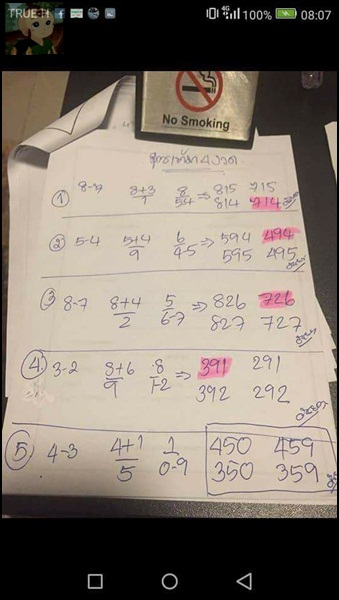 TRUE-H 4G 100% 08:07
No Smoking
① 8-7 8+3/1 8/5-4 ⇒ 815 715
814 714
② 5-4 5+4/9 6/4-5 ⇒ 594 494
595 495
③ 8-7 8+4/2 5/6-7 ⇒ 826 726
827 727
④ 3-2 8/1-2 ⇒ 391 291
392 292
⑤ 4-3 4+1/5 1/0-9 450 459
350 359